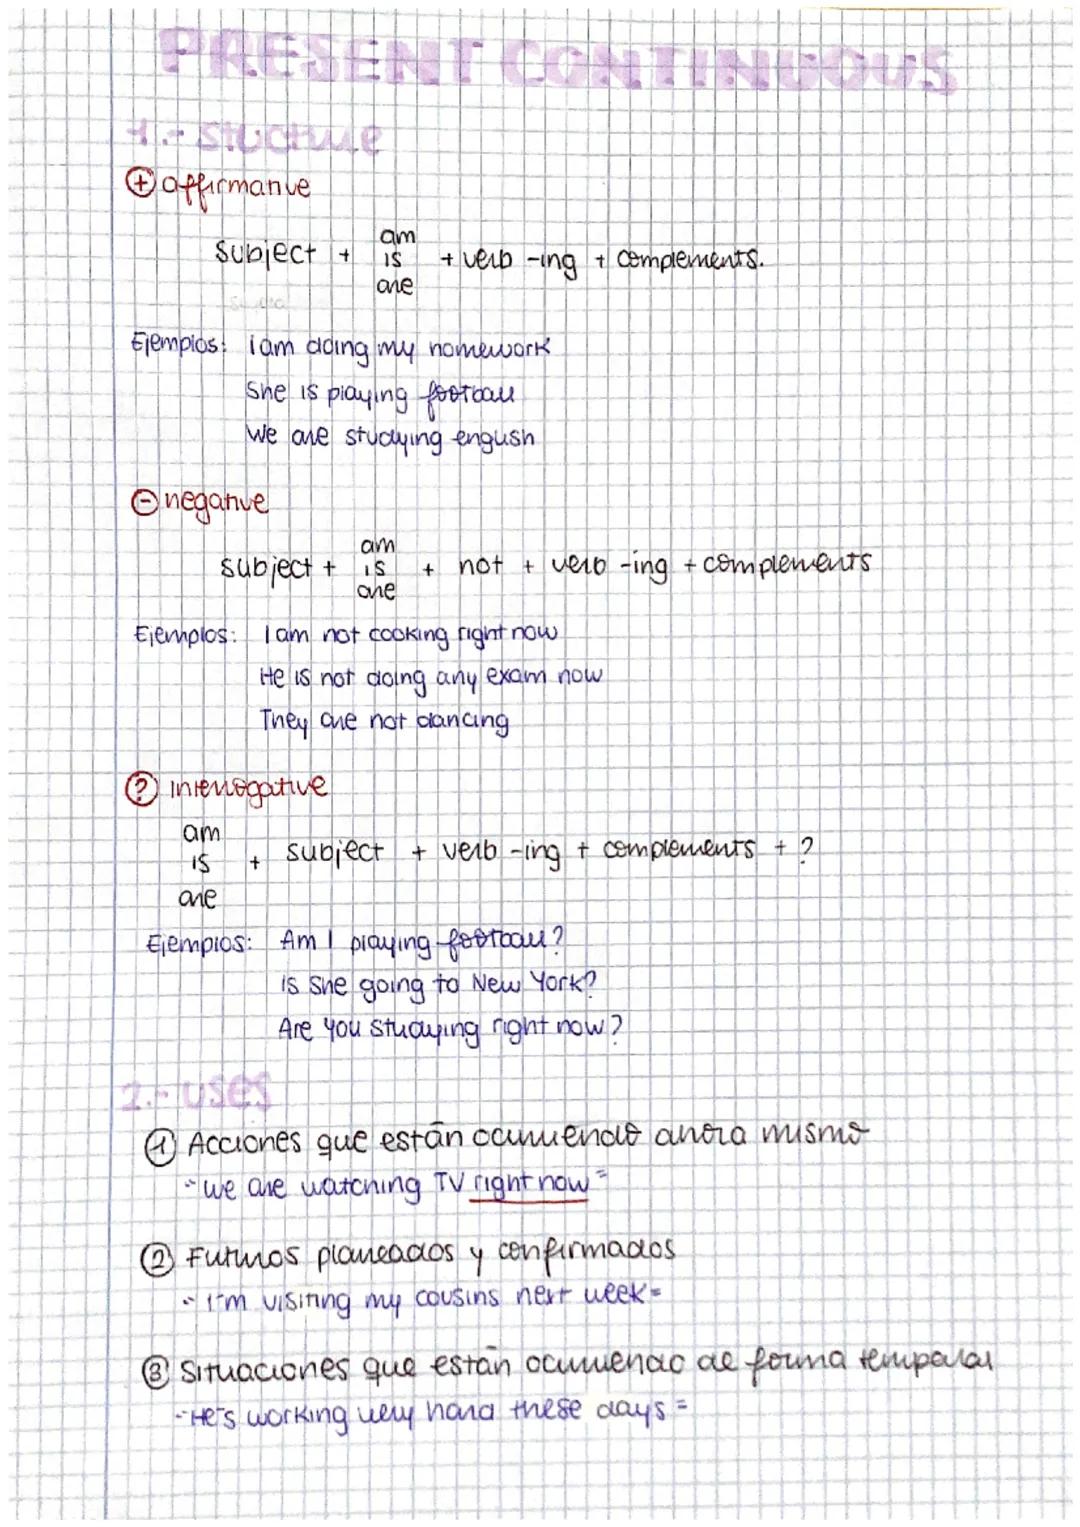 PRESENT CONTINUOUS
1.- Stucture
+ affirmative
am
subject + is + verb -ing + complements.
are
Ejemplos: I am doing my homework
She is playing football
We are studying english
- negative
am
subject + is + not + verb -ing + complements
are
Ejemplos: I am not cooking right now
He is not doing any exam now
They are not dancing
? interrogative
am
is + subject + verb -ing + complements + ?
are
Ejemplos: Am I playing football?
Is she going to New York?
Are you studying right now?
2.- uses
1 Acciones que están ocurriendo ahora mismo
"We are watching TV right now"
2 Futuros planeados y confirmados
"I'm visiting my cousins next week"
3 Situaciones que están ocurriendo de forma temporal
"He's working very hard these days"